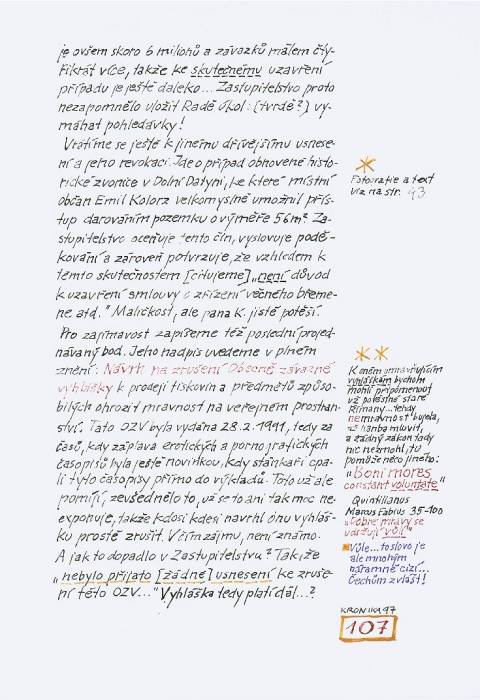 je ovšem skoro 6 milionů a závazků málem čty-
řikrát více, takže ke skutečnému uzavření
případu je ještě daleko... Zastupitelstvo proto
nezapomnělo uložit Radě úkol: [tvrdě?] vy-
máhat pohledávky!
Vrátíme se ještě k jinému dřívějšímu usnese-
ní a jeho revokaci. Jde o případ obnovené histo-
rické zvonice v Dolní Datyni, ke které místní
občan Emil Kolorz velkomyslně umožnil přís-
tup darováním pozemku o výměře 56m². Za-
stupitelstvo oceňuje tento čin, vyslovuje podě-
kování a zároveň potvrzuje, že vzhledem k
těmto skutečnostem [citujeme] „není důvod
k uzavření smlouvy o zřízení věcného břeme-
ne atd." Maličkost, ale pana K. jistě potěší.
Pro zajímavost zapíšeme též poslední projed-
návaný bod. Jeho nadpis uvedeme v plném
znění: Návrh na zrušení Obecně závazné
vyhlášky k prodeji tiskovin a předmětů způso-
bilých ohrozit mravnost na veřejném prostran-
ství. Tato OZV byla vydána 28.2.1991, tedy za
časů, kdy záplava erotických a pornografických
časopisů byla ještě novinkou, kdy stánkaři cpa-
li tyto časopisy přímo do výkladů. Toto už ale
pomíjí, zevšednělo to, už se to ani tak moc ne-
exponuje, takže kdosi kdesi navrhl onu vyhláš-
ku prostě zrušit. V čím zájmu, není známo.
A jak to dopadlo v Zastupitelstvu? Tak, že
„nebylo přijato [žádné] usnesení ke zruše-
ní této OZV..." Vyhláška tedy platí dál...?
*
Fotografie a text
viz na str. 93
**
K oněm
vyhláškám bychom
mohli připomenout
už pověstné staré
Římany... tehdy
nemravnost bujela,
až hanba mluvit,
a žádný zákon tady
nic nezmohl, tu
pomůže něco jiného:
"Boni mores
constant voluntate"
Quintilianus
Marcus Fabius 35-100
„Dobré mravy se
udržují vůlí"
Vůle... to slovo je
ale mnohým
náramně cizí...
Čechům zvlášť!
KRONIKA 97
107